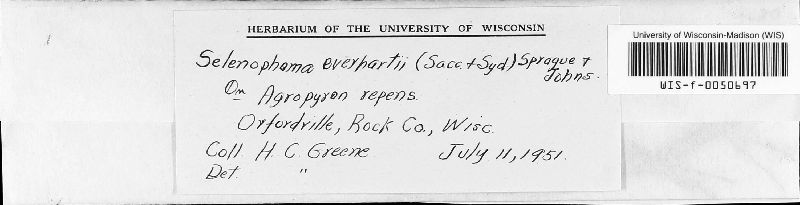 HERBARIUM OF THE UNIVERSITY OF WISCONSIN
Selenophoma everhartii (Sacc. + Syd) Sprague + Johns.
On Agropyron repens.
Orfordville, Rock Co., Wisc.
Coll. H. C. Greene July 11, 1951.
Det. "
University of Wisconsin-Madison (WIS)
WIS-f-0050697